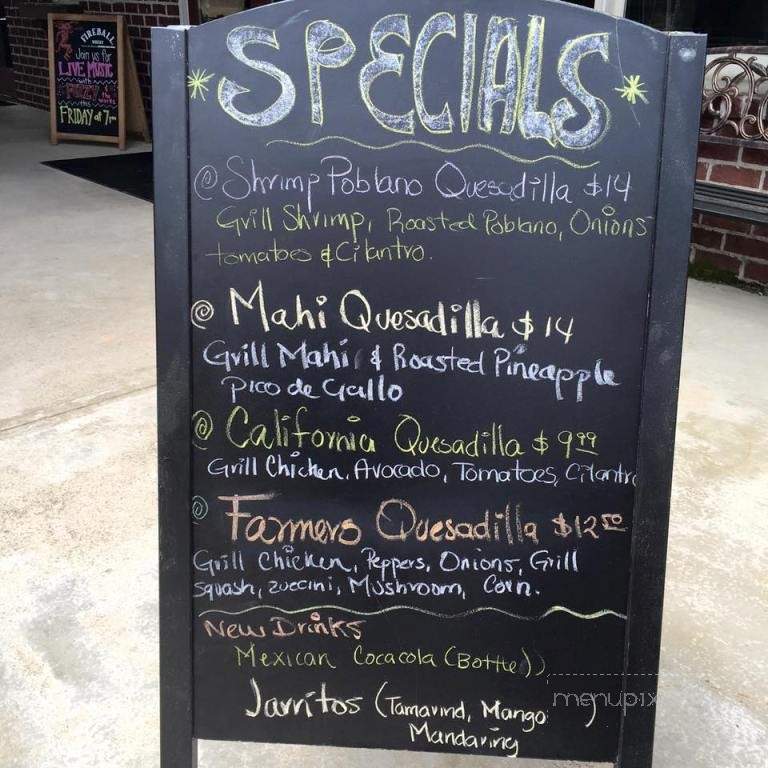 FIREBALL
Join us for
LIVE MUSIC
with
this
FRIDAY at 7pm
SPECIALS
@ Shrimp Poblano Quesadilla $14
Grill Shrimp, Roasted Poblano, Onions
tomatoes & Cilantro.
@ Mahi Quesadilla $14
Grill Mahi & Roasted Pineapple
Pico de Gallo
@ California Quesadilla $9.99
Grill Chicken, Avocado, Tomatoes, Cilantro
@ Farmers Quesadilla $12.50
Grill Chicken, Peppers, Onions, Grill
Squash, zuccini, Mushroom, Corn.
New Drinks
Mexican Cocacola (Bottle))
Jarritos (Tamarind, Mango )
Mandaring
menupix